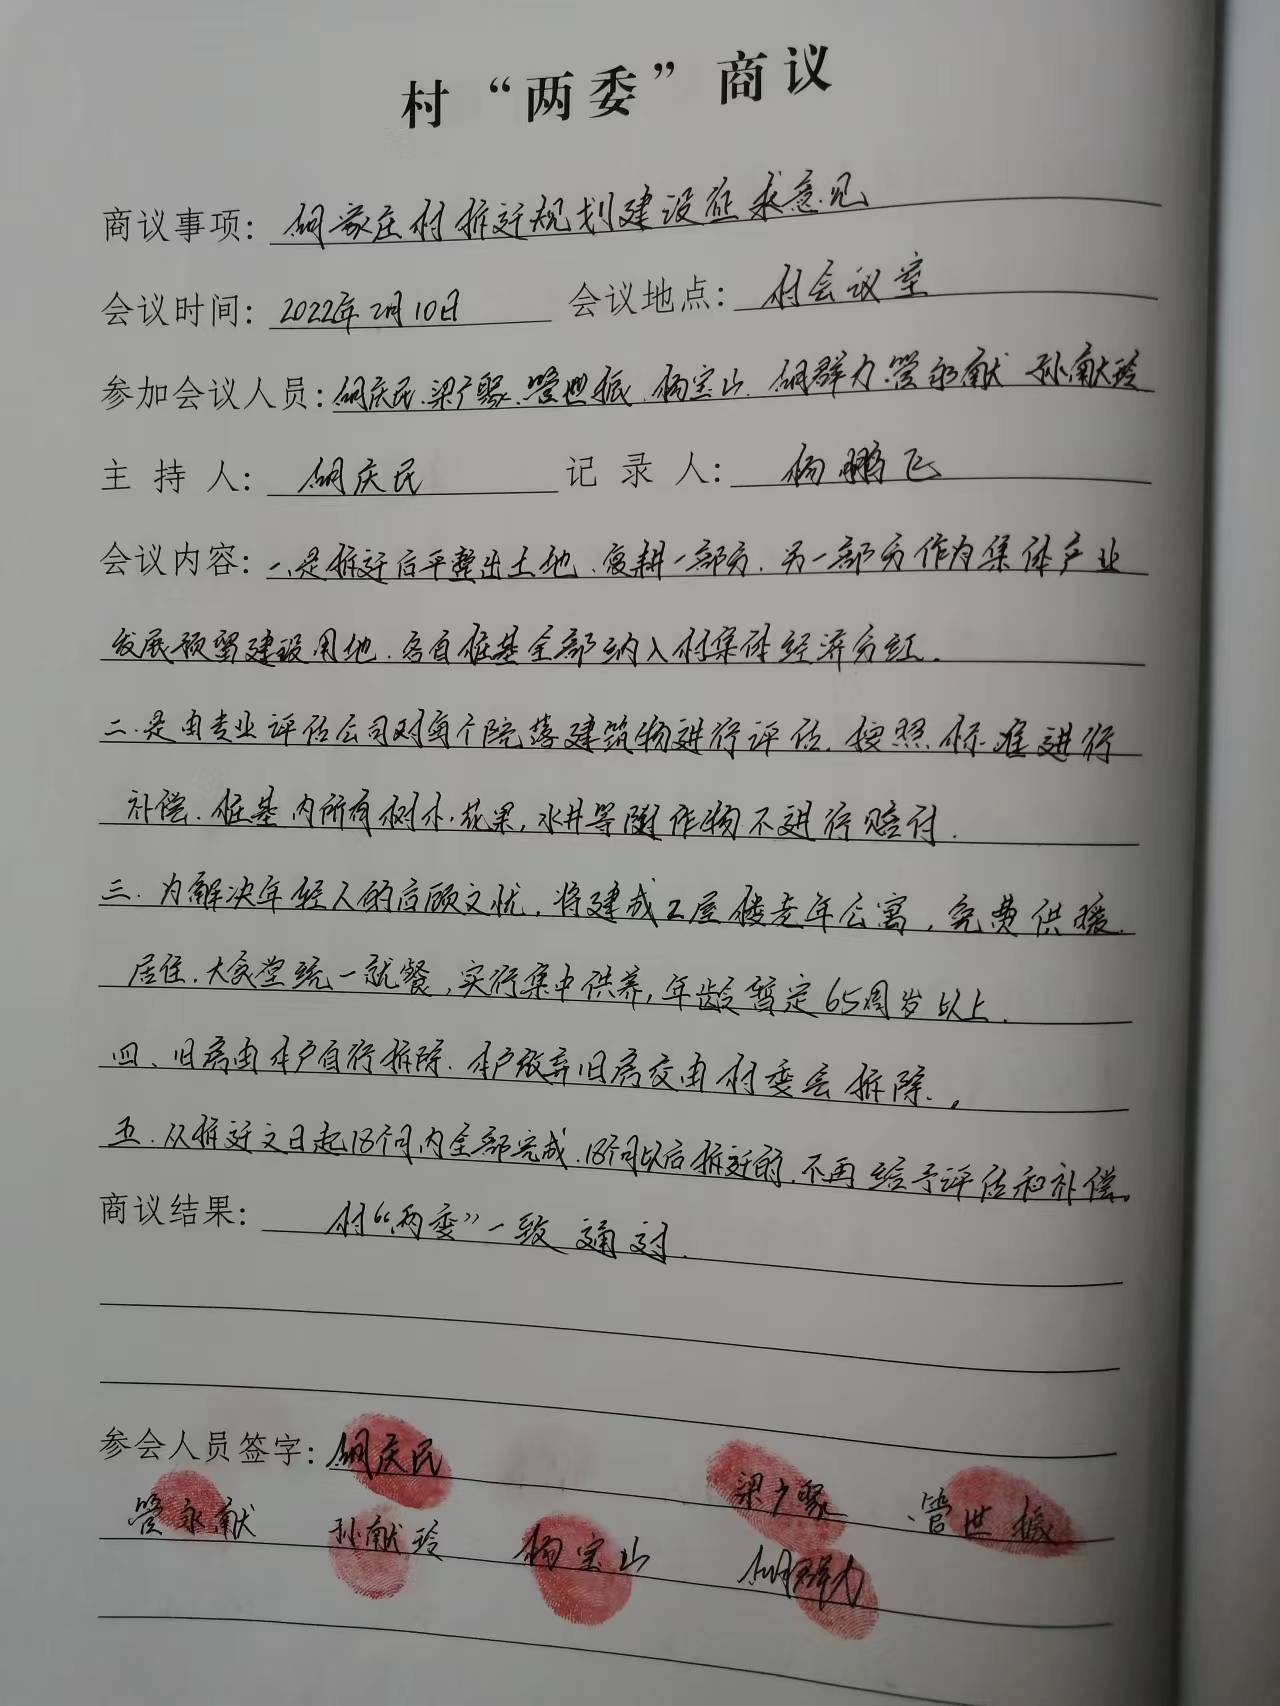 村“两委”商议
商议事项：胡家庄村拆迁规划建设征求意见
会议时间：2022年2月10日 会议地点：村会议室
参加会议人员：胡庆民、梁广聚、管世振、杨宝山、胡群力、管永献 孙献玲
主持人：胡庆民 记录人：杨鹏飞
会议内容：一、是拆迁后平整出土地、复耕一部分、另一部分作为集体产业
发展预留建设用地、各自桩基全部纳入村集体经济分红.
二、是由专业评估公司对每个院落建筑物进行评估、按照标准进行
补偿、桩基内所有树木、花果，水井等附作物不进行赔付.
三、为解决年轻人的后顾之忧，将建成2层楼老年公寓，免费供暖、
居住、大食堂统一就餐，实行集中供养，年龄暂定65周岁以上.
四、旧房由本户自行拆除、本户放弃旧房交由村委会拆除.
五、从拆迁之日起18个月内全部完成、18个月以后拆迁的、不再给予评估和补偿。
商议结果：村“两委”一致通过.
参会人员签字：胡庆民 梁广聚 管世振
管永献 孙献玲 杨宝山 胡群力